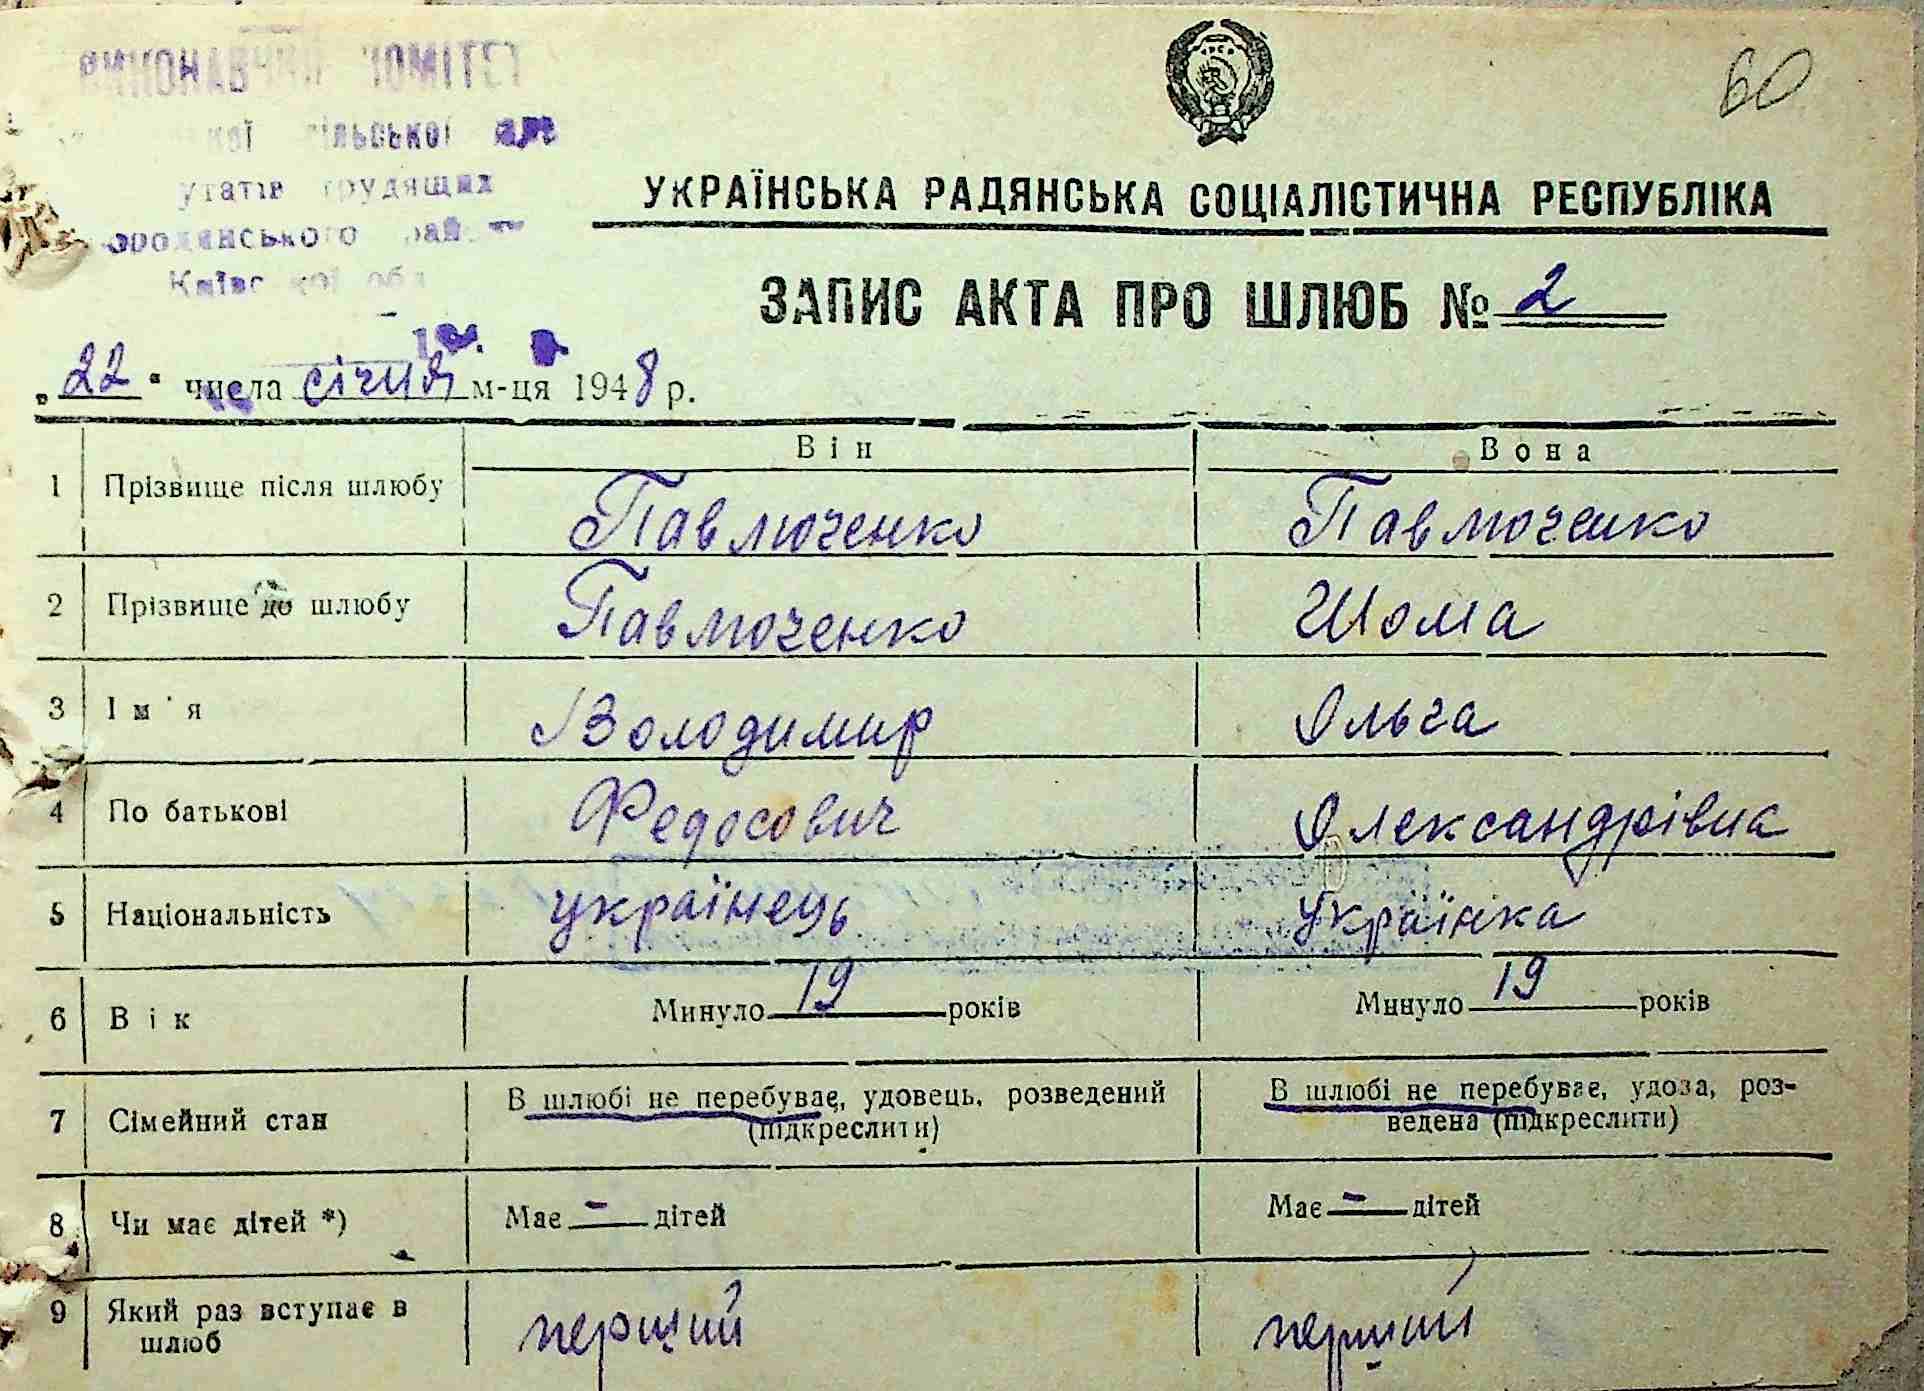 ВИКОНАВЧИЙ КОМІТЕТ
сільської
трудящих
Бородянського району
Київської обл.
60
УКРАЇНСЬКА РАДЯНСЬКА СОЦІАЛІСТИЧНА РЕСПУБЛІКА
ЗАПИС АКТА ПРО ШЛЮБ № 2
„22“ числа січня м-ця 1948 р.
Він Вона
1 Прізвище після шлюбу Павлюченко Павлюченко
2 Прізвище до шлюбу Павлюченко Шома
3 Ім'я Володимир Ольга
4 По батькові Федосович Олександрівна
5 Національність українець українка
6 Вік Минуло 19 років Минуло 19 років
7 Сімейний стан В шлюбі не перебуває, удовець, розведений (підкреслити) В шлюбі не перебуває, удова, роз-
ведена (підкреслити)
8 Чи має дітей *) Має - дітей Має - дітей
9 Який раз вступає в
шлюб перший перший